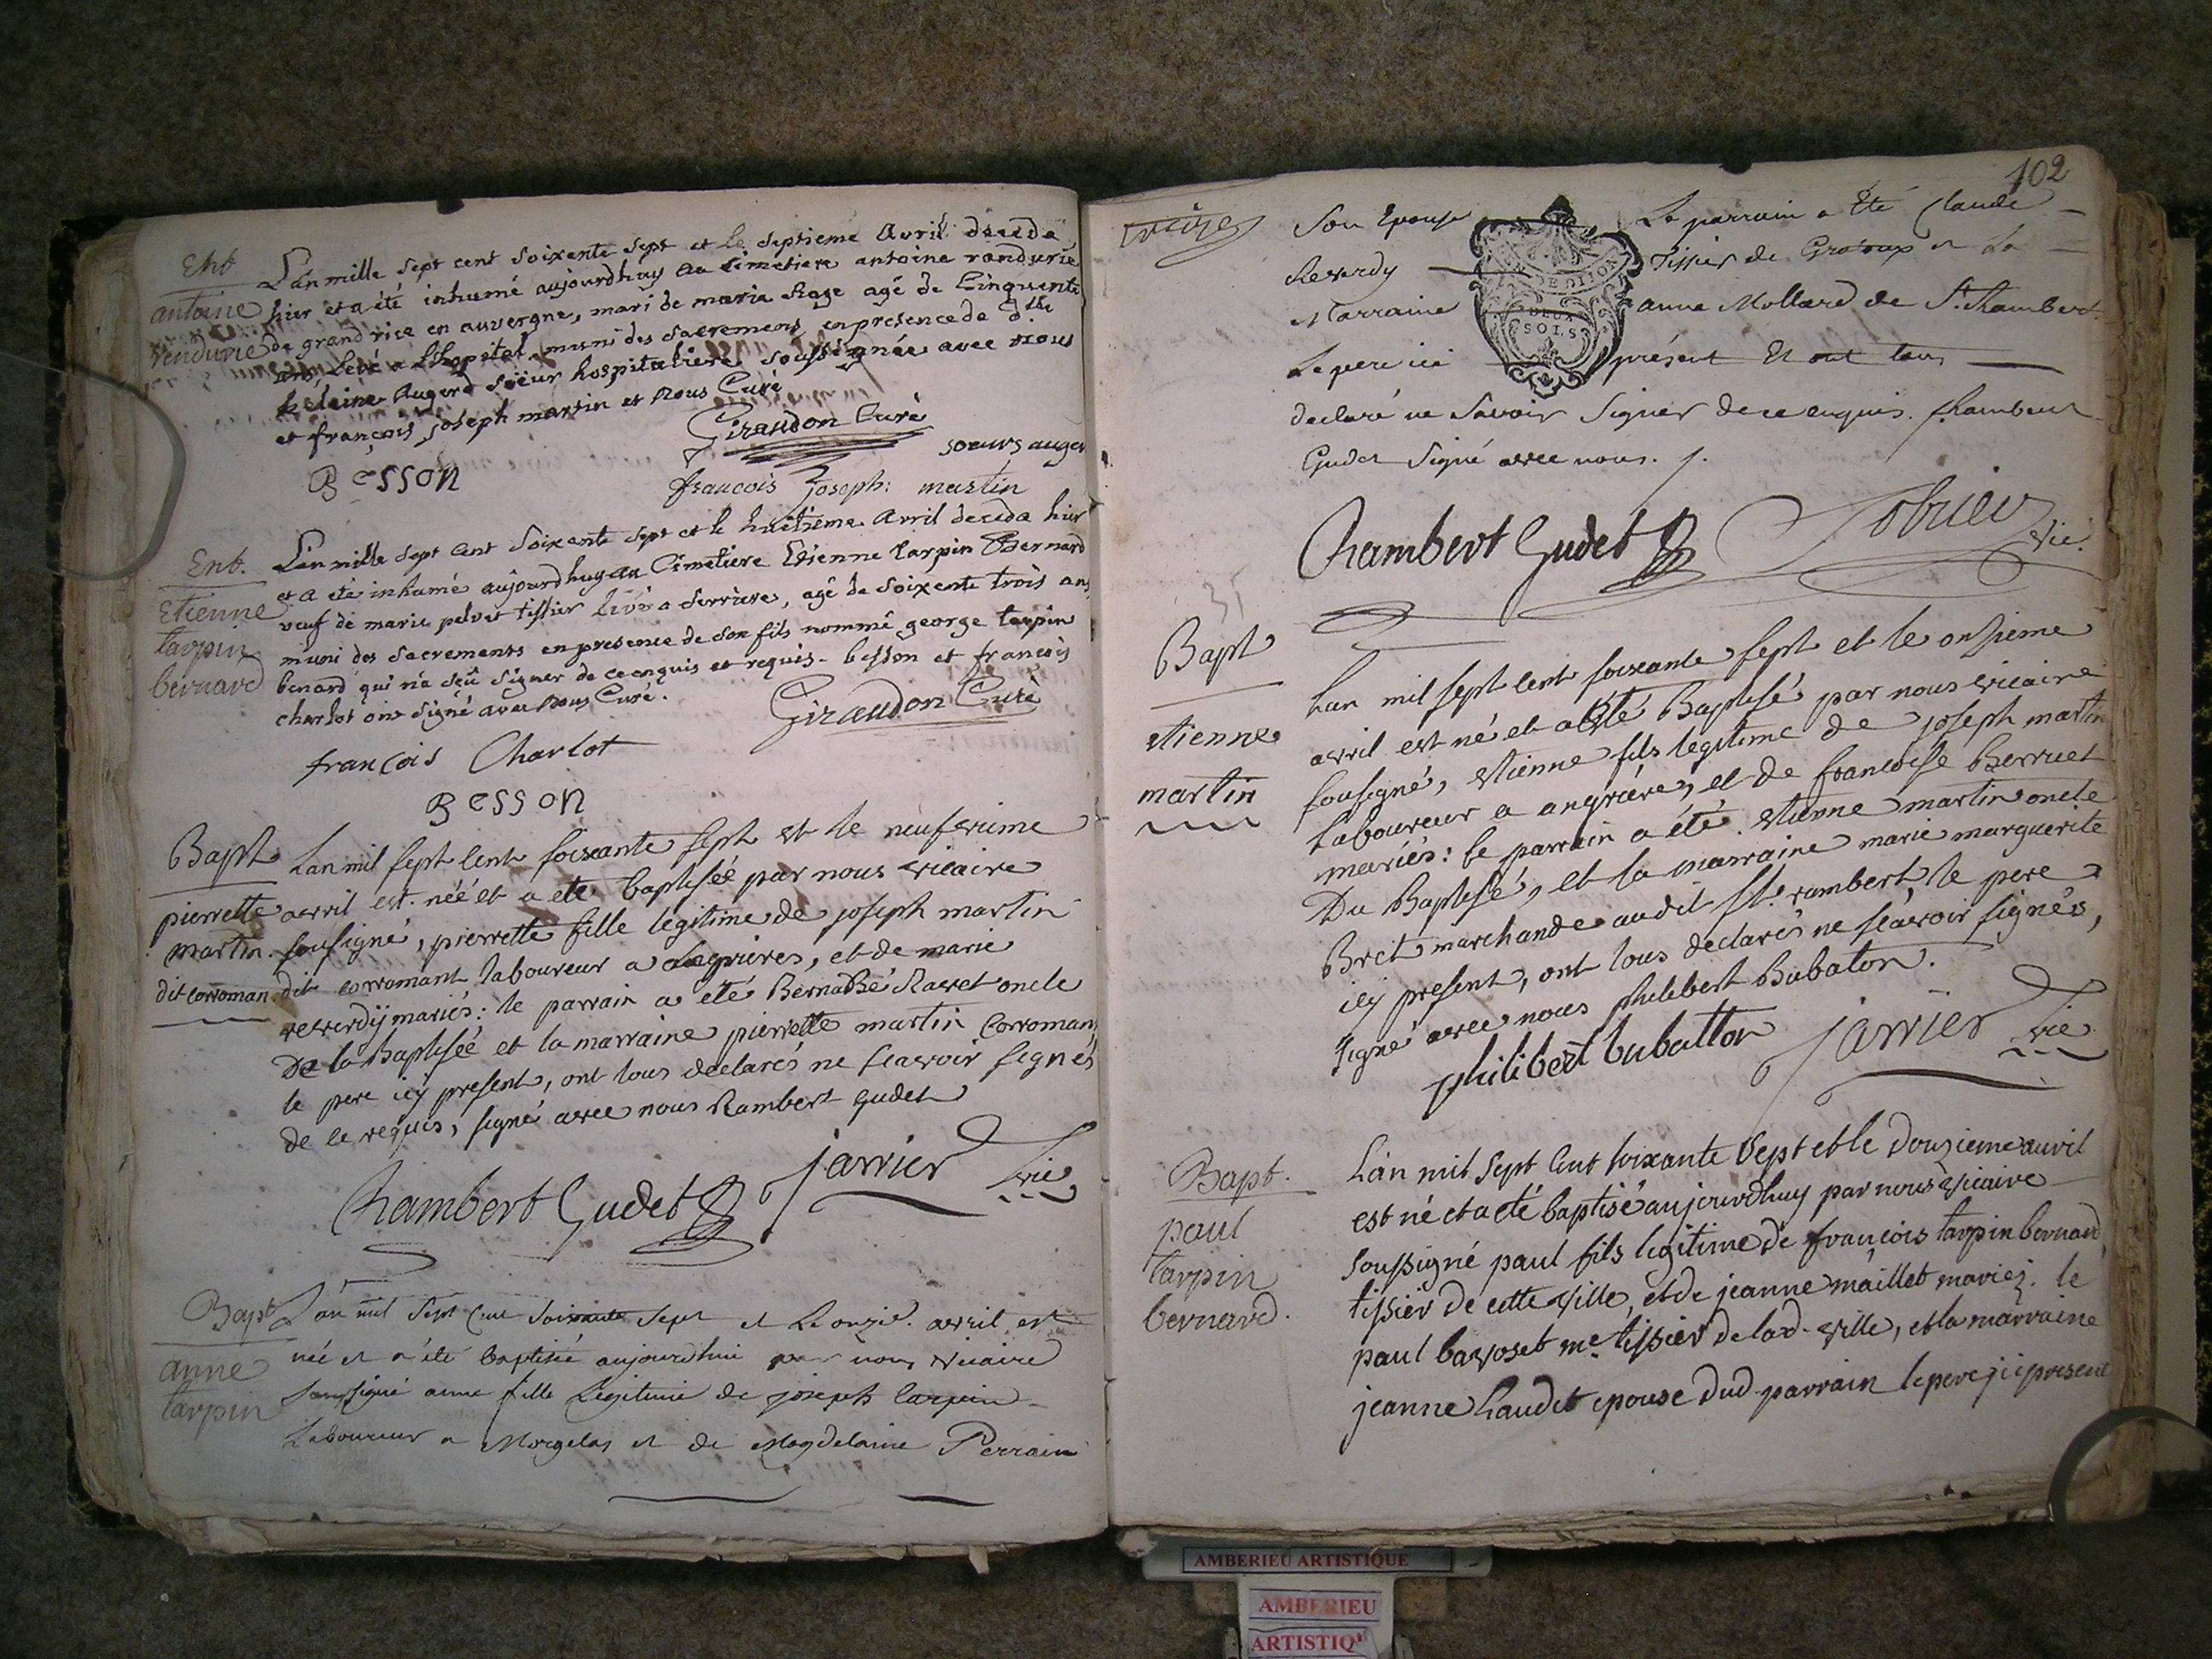 Ent
antoine
rendurie
Lan mille sept cent soixente sept et le septieme Avril deceda
hier et a été inhumé aujourdhuy au Cimetiere antoine randurie
de grand rice en auvergne, mari de marie agé de Cinquente
ans, a l'hopital muni des sacremens en presence de dlle
helaine Augerd soeur hospitaliere soussignée avec
et françois joseph martin et nous Curé
Giraudon Curé
soeurs auger
Besson
francois joseph: martin
Ent.
Etienne
tarpin
bernard
Lan mille sept Cent Soixente sept et le huitieme Avril deceda hier
et a été inhumé aujourdhuy au Cimetiere Etienne tarpin Bernard
veuf de marie tissier a Serrieres, agé de soixente trois ans
muni des sacrements en presence de son fils nommé george tarpin
benard qui n'a sçû signer de ce enquis et requis. besson et françois
charlot ont signé avec nous Curé.
Giraudon Curé
françois Charlot
Besson
Bapt
pierrette
martin
dit corroman
Lan mil sept cent soixante sept et le neufvieme
avril est néé et a eté baptiséé par nous vicaire
sousigné, pierrette fille legitime de joseph martin
dit corromant laboureur a angrieres, et de marie
reverdij mariés: le parrain a été Bernabé Ravet oncle
De la Baptiséé et la marraine pierrette martin Corroman,
le pere icy present, ont tous declarés ne sçavoir signés
de ce requis, signé avec nous Rambert gudet
Chambert Gudet jarrier vic
Bapt
anne
tarpin
L'an mil sept Cent soixante sept et le onzie. avril est
née et a été baptisée aujourdhui par nous vicaire
soussigné anne fille Légitime de joseph tarpin
Laboureur a Morgelas et de Magdelaine Perrain
102
Son Epouse Le parrain a Eté Claude
Reverdy Tissier de et La
Marraine anne Mollard de St. Rambert.
DEUX
SOLS
Le pere ici présent Et ont tous
declaré ne Savoir Signer de ce enquis. Chambert
Gudet Signé avec nous.
Chambert Gudet vic.
Bapt
etienne
martin
Lan mil sept cent soixante sept et le onsieme
avril est né et a été Baptisé par nous vicaire
sousigné, etienne fils legitime de joseph martin
laboureur a angriéres, et de francoise Berruet
mariés: le parrain a été etienne martin oncle
Du Baptisé, et la marraine marie marguerite
Bret marchande audit st. rambert, le pere
icy present, ont tous declarés ne sçavoir signés,
signé avec nous philibert Bubaton.
philibert bubatton jarrier vic
Bapt.
paul
tarpin
bernard.
L'an mil sept Cent soixante Sept et le Douzieme avril
est né et a été baptisé aujourdhuy par nous vicaire
soussigné paul fils legitime de françois tarpin bernard
tissier de cette ville, et de jeanne maillet mariez. le
paul bavoset me. tissier de lad. ville, et la marraine
jeanne Laudet epouse dud. parrain le pere ici present
AMBERIEU ARTISTIQUE
AMBERIEU
ARTISTIQ